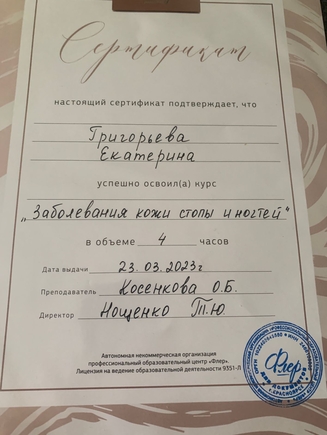 Сертификат
настоящий сертификат подтверждает, что
Григорьева
Екатерина
успешно освоил(а) курс
„Заболевания кожи стопы и ногтей“
в объеме 4 часов
Дата выдачи 23.03.2023г
Преподаватель Косенкова О.Б.
Директор Нощенко Т.Ю.
Автономная некоммерческая организация
профессиональный образовательный центр «Флер».
Лицензия на ведение образовательной деятельности 9351-Л
Флер